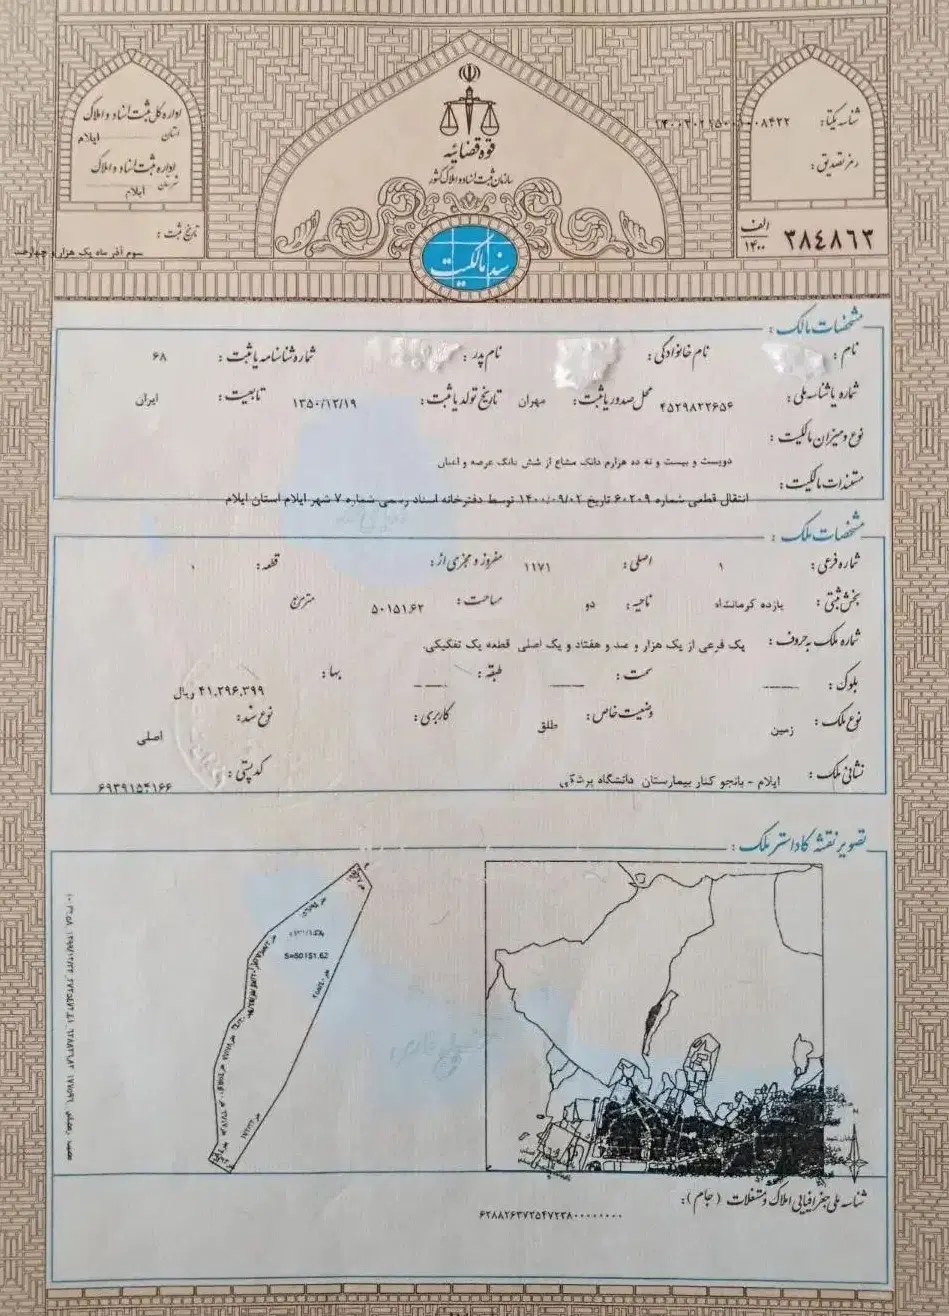 قوه قضائیه
سازمان ثبت اسناد و املاک کشور
سند مالکیت
اداره کل ثبت اسناد و املاک
استان ایلام
اداره ثبت اسناد و املاک
شهرستان ایلام
تاریخ ثبت :
سوم آذر ماه یک هزار و چهارصد
شناسه یکتا :
رمز تصدیق :
الف ۱۴۰۰ ۳۸۴۸۶۳
مشخصات مالک :
نام : نام خانوادگی : نام پدر : شماره شناسنامه یا ثبت : ۶۸
شماره یا شناسه ملی : ۴۵۲۹۸۲۲۶۵۶ محل صدور یا ثبت : مهران تاریخ تولد یا ثبت : ۱۳۵۰/۱۲/۱۹ تابعیت : ایران
نوع و میزان مالکیت :
دویست و بیست و نه ده هزارم دانگ مشاع از شش دانگ عرصه و اعیان
مستندات مالکیت :
انتقال قطعی شماره ۶۰۲۰۹ تاریخ ۱۴۰۰/۰۹/۰۲ توسط دفترخانه اسناد رسمی شماره ۷ شهر ایلام استان ایلام
مشخصات ملک :
شماره فرعی : ۱ اصلی : ۱۱۷۱ مفروز و مجزی از : قطعه : ۱
بخش ثبتی : یازده کرمانشاه ناحیه : دو مساحت : ۵۰۱۵۱.۶۲ مترمربع
شماره ملک به حروف : یک فرعی از یک هزار و صد و هفتاد و یک اصلی قطعه یک تفکیکی.
بلوک : سمت : طبقه : بها : ۴۱,۲۹۶,۳۹۹ ریال
نوع ملک : زمین وضعیت خاص : طلق کاربری : نوع سند : اصلی
نشانی ملک : ایلام - بانجو کنار بیمارستان دانشگاه پزشکی کد پستی : ۶۹۳۹۱۵۴۱۶۶
تصویر نقشه کاداستر ملک :
S=50151.62
شناسه ملی جغرافیایی املاک و مستغلات ( جام ) :